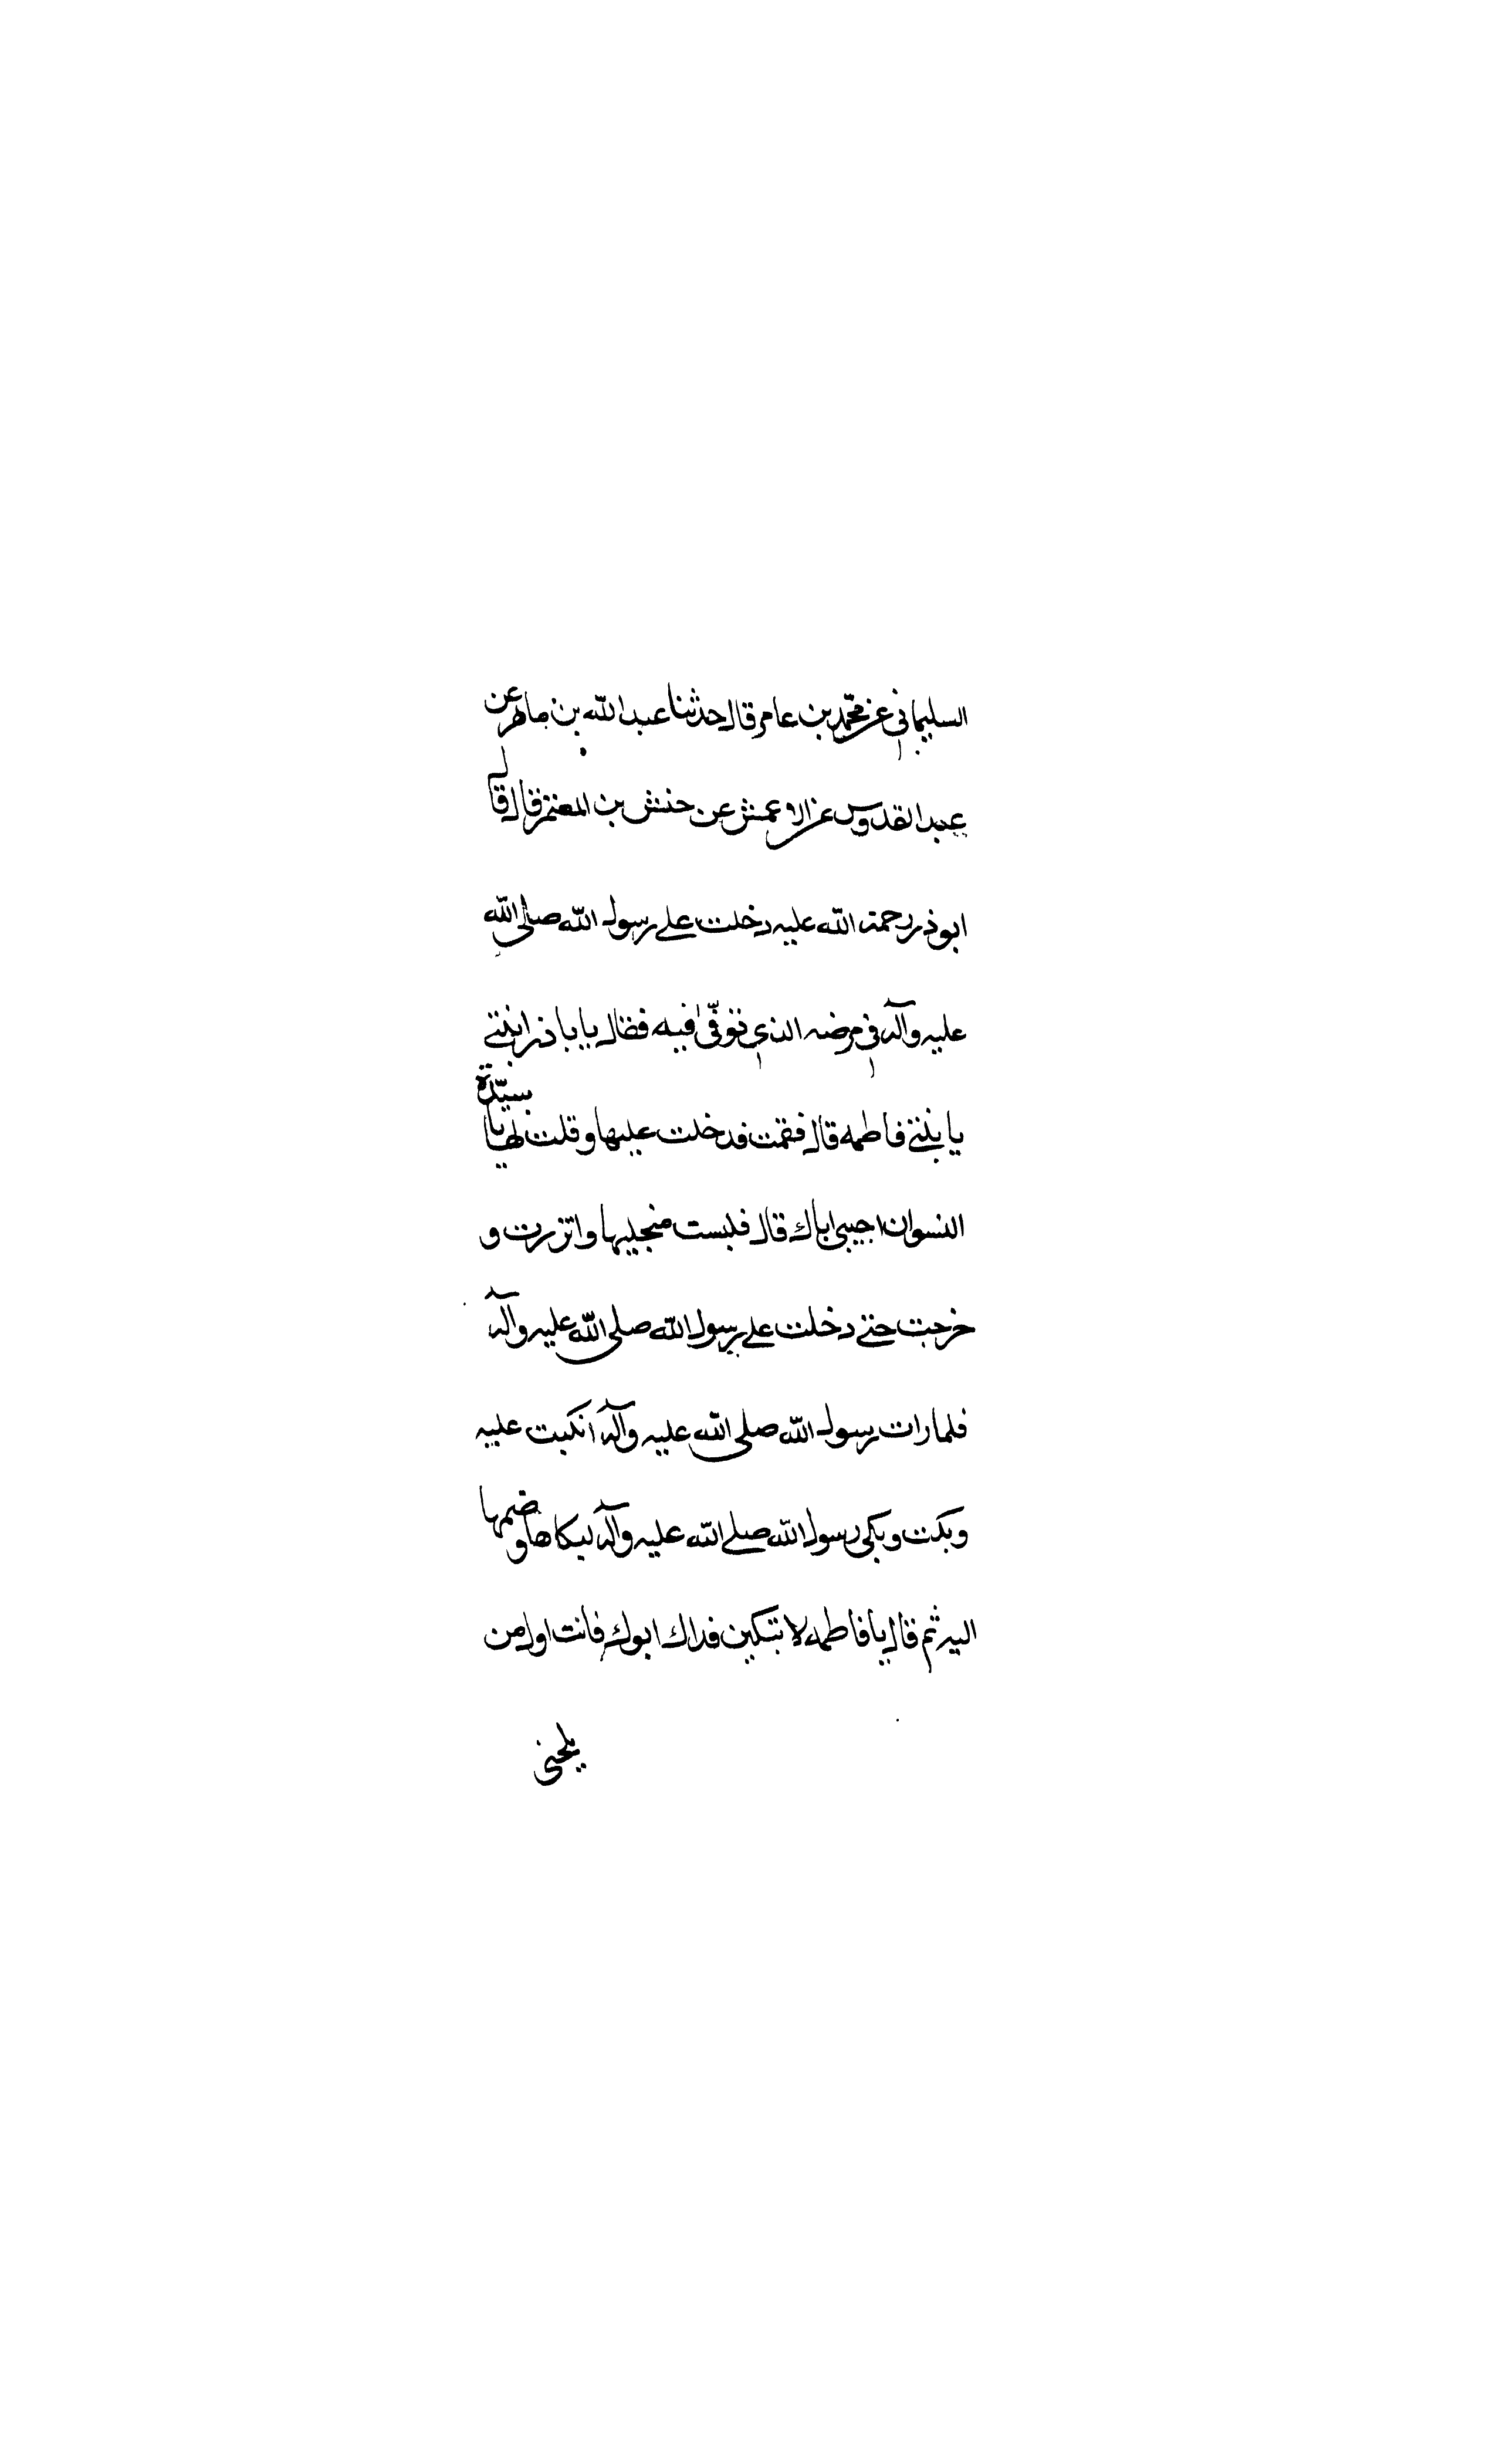 السليماني عن محمد بن عامر قال حدثنا عبد الله بن ماهر عن
عبد القدوس عن الاعمش عن حنش بن المعتمر قال قال
ابوذر رحمة الله عليه دخلت على رسول الله صلى الله
عليه وآله في مرضه الذي توفّى فيه فقال يا باذر ايتني
يا بنتي فاطمه قال فقمت فدخلت عليها وقلت لها يا سيّدة
النسوان اجيبي اباك قال فلبست منجليها واتزرت و
خرجت حتى دخلت على رسول الله صلى الله عليه وآله
فلما رات رسول الله صلى الله عليه وآله انكبت عليه
وبكت وبكى رسول الله صلى الله عليه وآله لبكاها وضمها
اليه ثم قال يا فاطمه لا تبتكين فداك ابوك فانت اول من
يلحقني